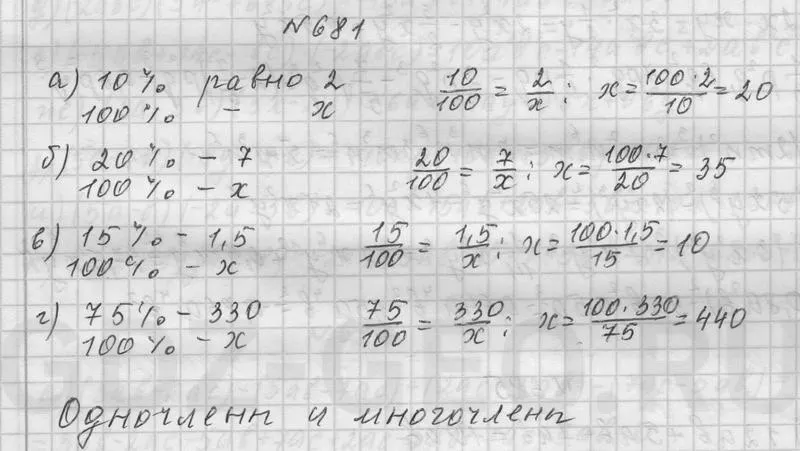 №681
а) 10% равно 2 10/100 = 2/x; x = 100·2/10 = 20
100% – x
б) 20% – 7 20/100 = 7/x; x = 100·7/20 = 35
100% – x
в) 15% – 1,5 15/100 = 1,5/x; x = 100·1,5/15 = 10
100% – x
г) 75% – 330 75/100 = 330/x; x = 100·330/75 = 440
100% – x
Одночлены и многочлены